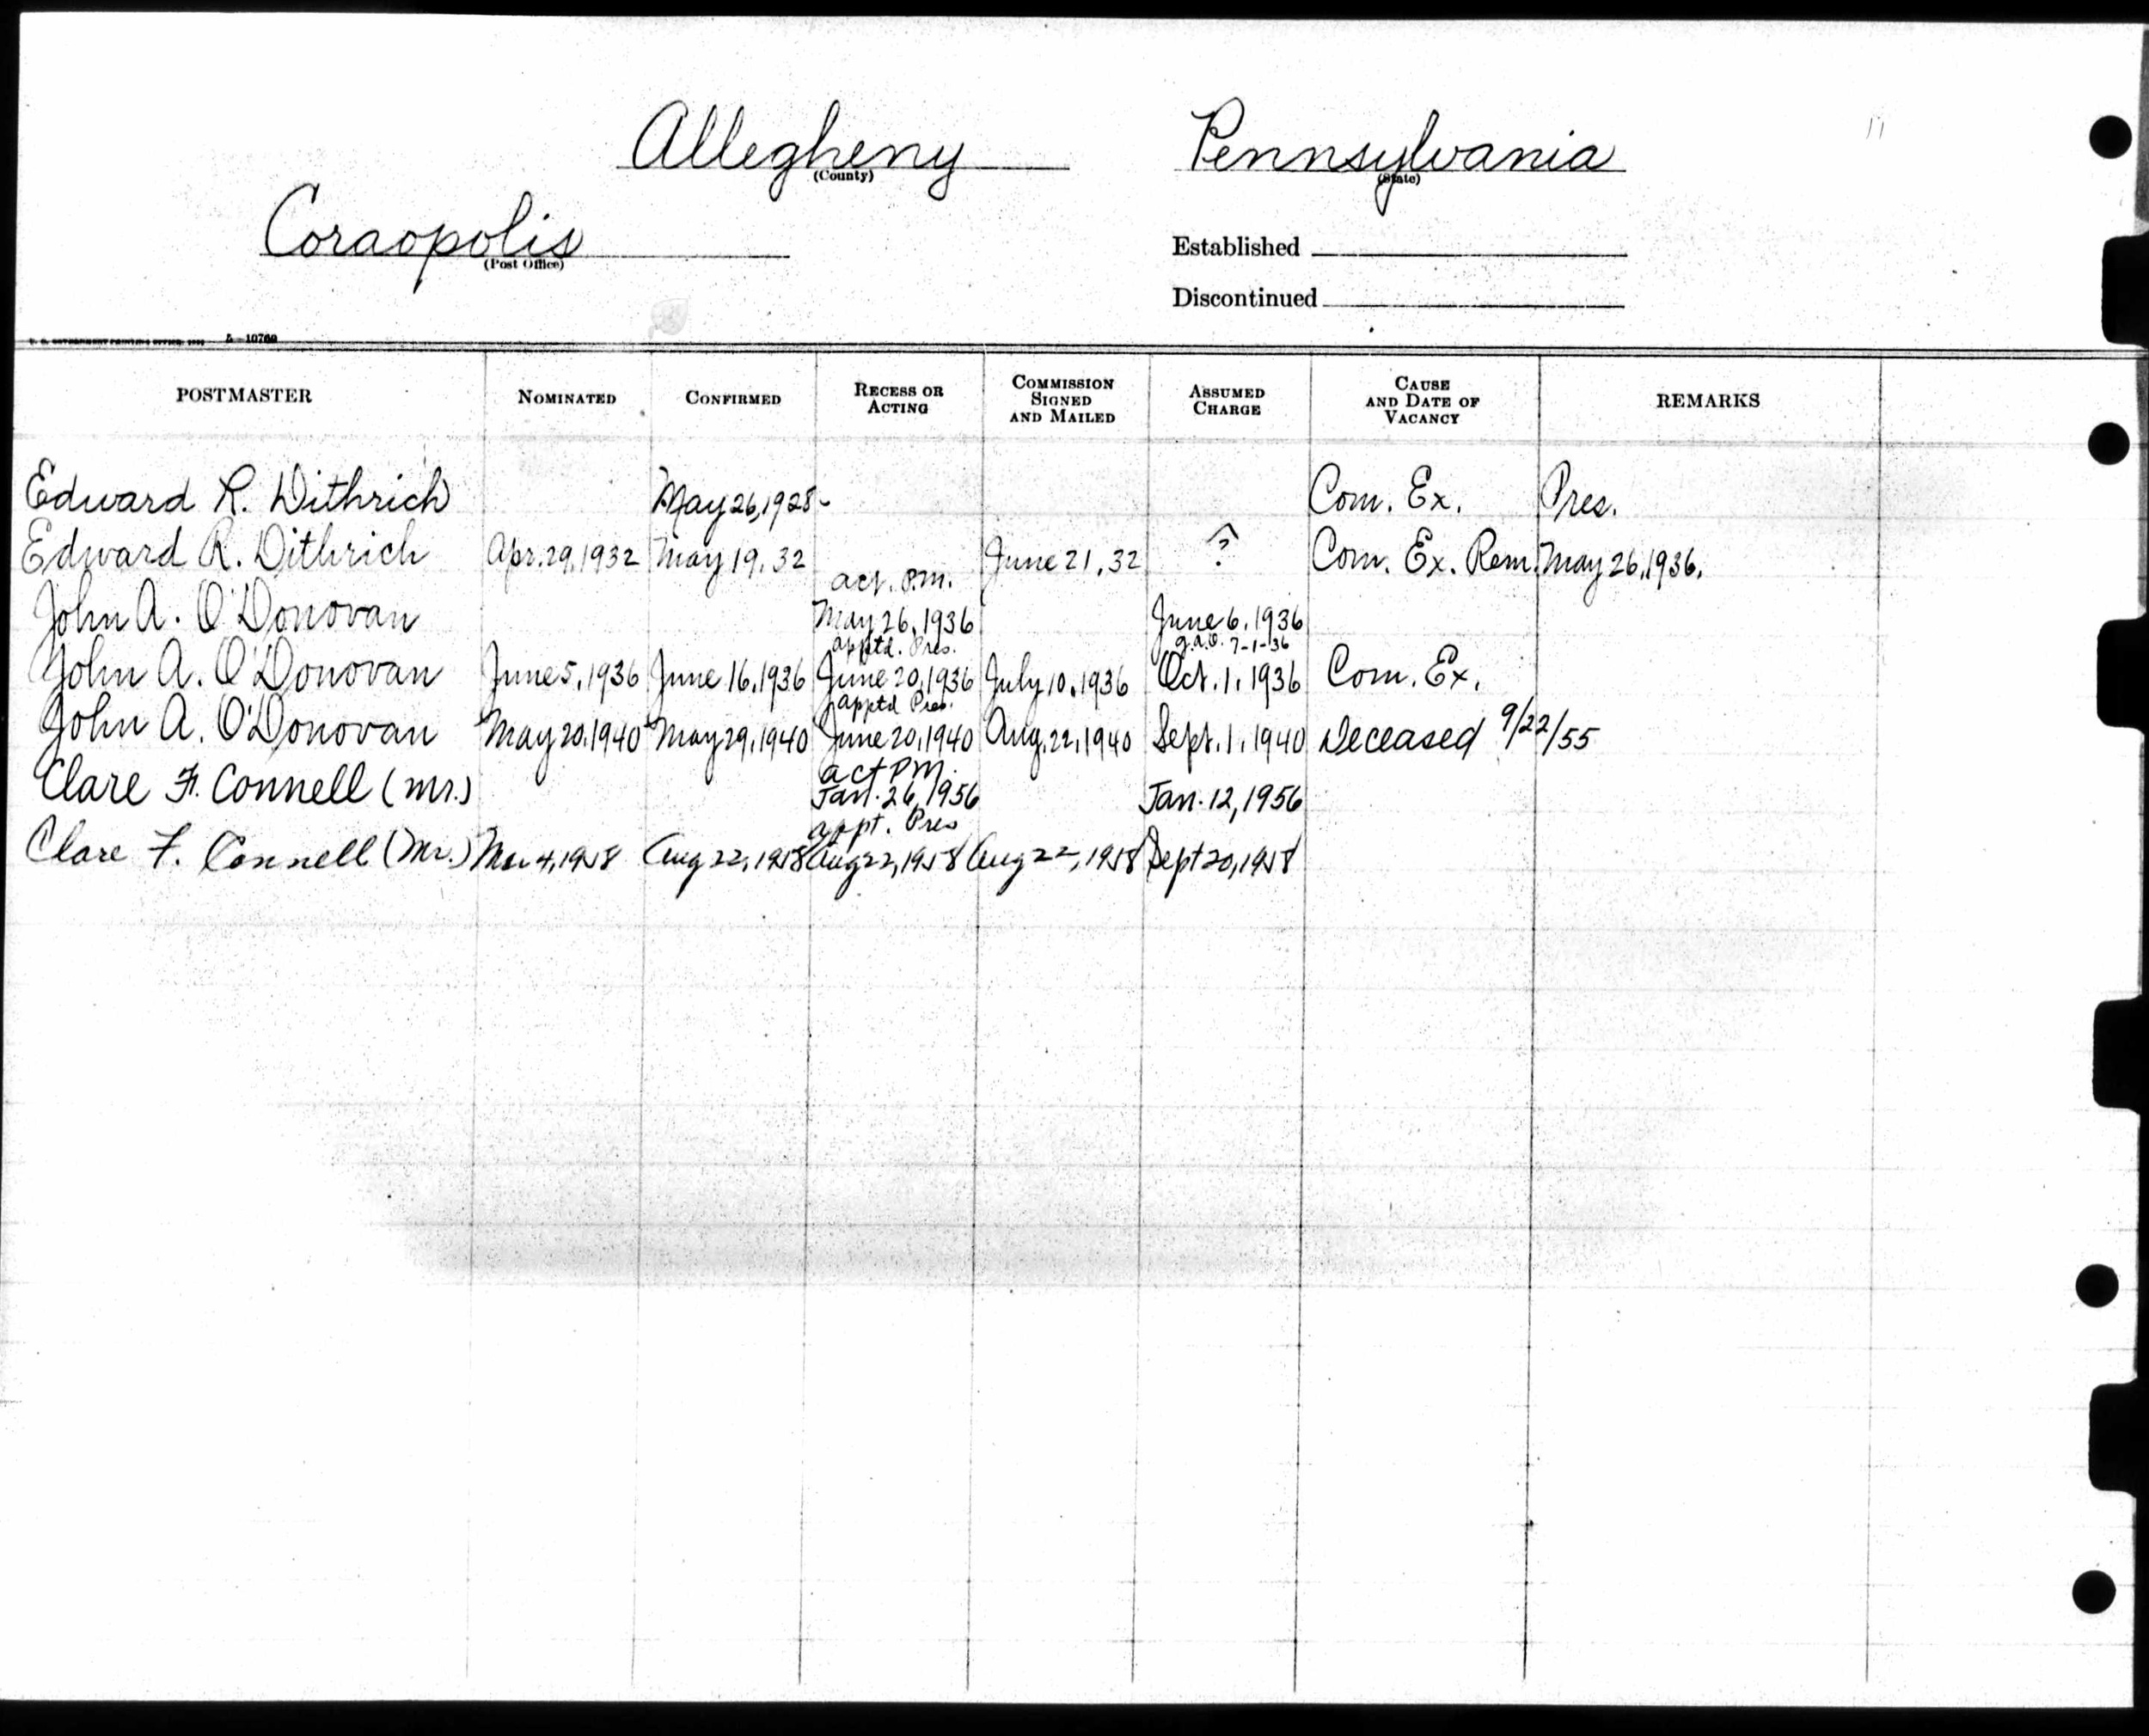 Allegheny Pennsylvania
(County) (State)
Coraopolis
(Post Office)
Established
Discontinued
5-10760
POSTMASTER NOMINATED CONFIRMED RECESS OR ACTING COMMISSION SIGNED AND MAILED ASSUMED CHARGE CAUSE AND DATE OF VACANCY REMARKS
Edward R. Dithrich May 26, 1928- Com. Ex. Pres.
Edward R. Dithrich Apr. 29, 1932 May 19, 32 June 21, 32 ? Com. Ex. Rem. May 26, 1936.
act. P.M.
John A. O'Donovan May 26, 1936 June 6, 1936
apptd. Pres. g.a.o. 7-1-36
John A. O'Donovan June 5, 1936 June 16, 1936 June 20, 1936 July 10, 1936 Oct. 1, 1936 Com. Ex.
apptd Pres.
John A. O'Donovan May 20, 1940 May 29, 1940 June 20, 1940 Aug. 22, 1940 Sept. 1, 1940 Deceased 9/22/55
act PM.
Clare F. Connell (Mr.) Jan. 26, 1956 Jan. 12, 1956
appt. Pres
Clare F. Connell (Mr.) 4, 1958 Aug 22, 1958 Aug 22, 1958 Aug 22, 1958 Sept 20, 1958